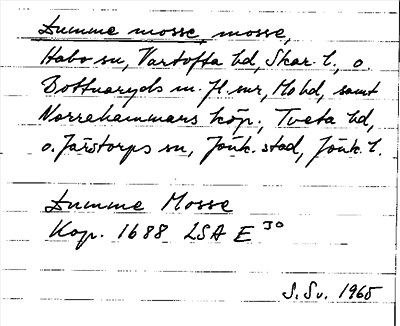 Dumme mosse, mosse,
Habo sn, Vartofta hd, Skar. l., o.
Bottnaryds m. fl. snr, Mo hd, samt
Norrahammars köp., Tveta hd,
o. Järstorps sn, Jönk. stad, Jönk. l.
Dumme Mosse
Kop. 1688 LSA E 30
S. Sv. 1965